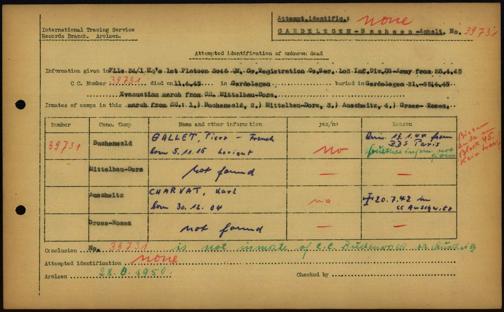 International Tracing Service
Records Branch. Arolsen.
Attempt.identific.: none
GARDELEGEN-Sachsen-Anhalt. No. 39731
Attempted identification of unknown dead
Information given in File 24/1 Hq's 1st Platoon 3046 QM. Gr.Registration Co.Ser. 102 Inf.Div. US-Army from 25.4.45
C.C. Number 39731 died on 11.4.45 in Gardelegen buried in Gardelegen 21.-25.4.45
Evacuation march from CC. Mittelbau-Dora.
Inmates of camps in this march from CC.: 1.) Buchenwald, 2.) Mittelbau-Dora, 3.) Auschwitz, 4.) Gross-Rosen.
Number Conc. Camp Name and other information yes/no
39731 Buchenwald GALLET, Pierre - French
born 5.11.15 Lorient no
from
Paris
Mittelbau-Dora not found —
Auschwitz CHARVAT, Karl
born 30.12.04 no 20.7.42 in
CC Auschwitz
Gross-Rosen not found — —
Conclusion No. 39731 is not inmate of C.C. Buchenwald or Auschwitz
Attempted identification none
Arolsen 28.8.1950. Checked by